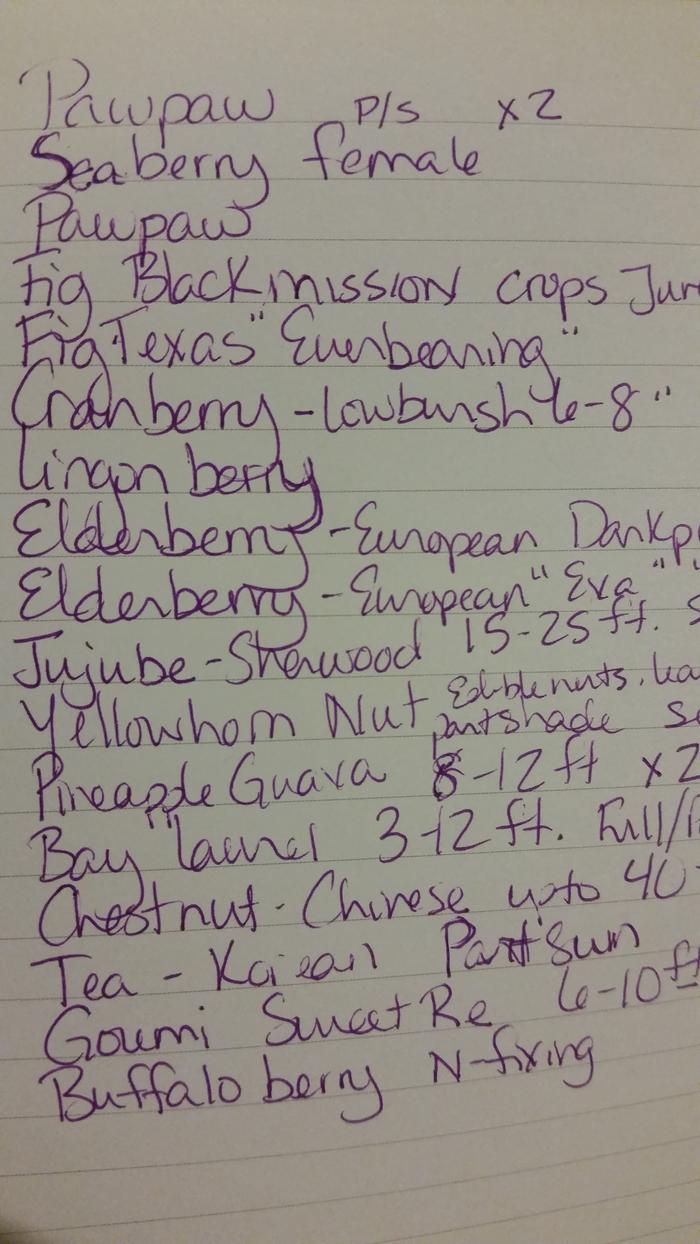 Pawpaw P/S x2
Seaberry female
Pawpaw
Fig Black mission crops Jun
Fig Texas "Everbearing"
Cranberry - lowbush 6-8"
Lingon berry
Elderberry - European Dankp
Elderberry - European "Eva"
Jujube - Sherwood 15-25 ft. S
Yellowhorn Nut Edible nuts, lea
partshade
Pineapple Guava 8-12 ft x2
Bay "laurel 3-12 ft. Full/
Chestnut - Chinese upto 40
Tea - Korean Part Sun
Goumi Sweet Re 6-10 ft
Buffalo berry N-fixing